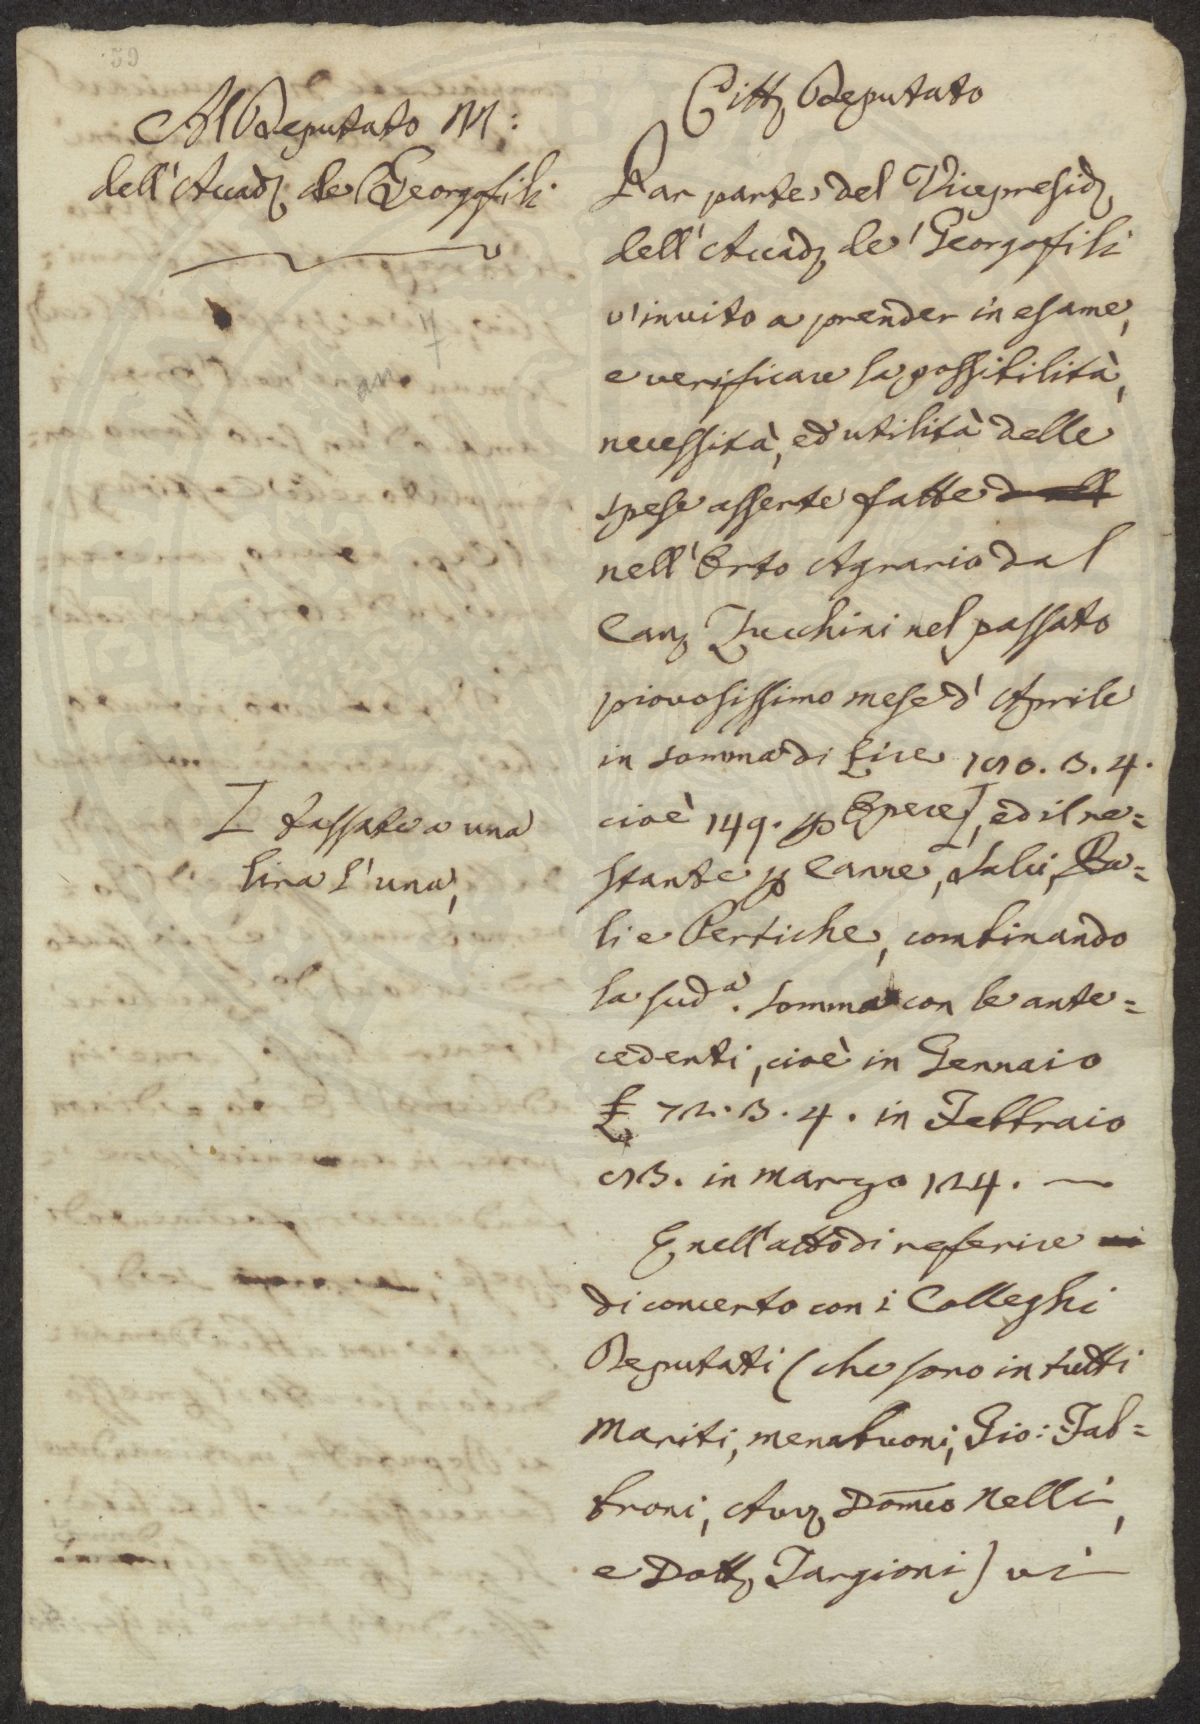 Al Deputato M:
dell'Accad. de Georgofili
Citt. Deputato
Par parte del Vicepresid.
dell'Accad. de' Georgofili
v'invito a prender in esame,
e verificare la possibilità,
necessità, ed utilità delle
spese asserte fatte dall
nell'Orto Agrario dal
Can. Zucchini nel passato
piovosissimo mese d'Aprile
in somma di Lire 190. 3. 4.
cioè 149. p Opere, ed il re=
stante p Canne, Salci, Pa=
li e Pertiche, combinando
la sud.a somma con le ante=
cedenti, cioè in Gennaio
£ 72. 3. 4. in Febbraio
93. in marzo 124.
E nell'atto di referire vi
di concerto con i Colleghi
Deputati (che sono in tutti
Mariti, menabuoni, Gio: Fab=
broni, Avv. Dom.co Nelli,
e Dott. Targioni) vi
I tassate a una
lira l'una,